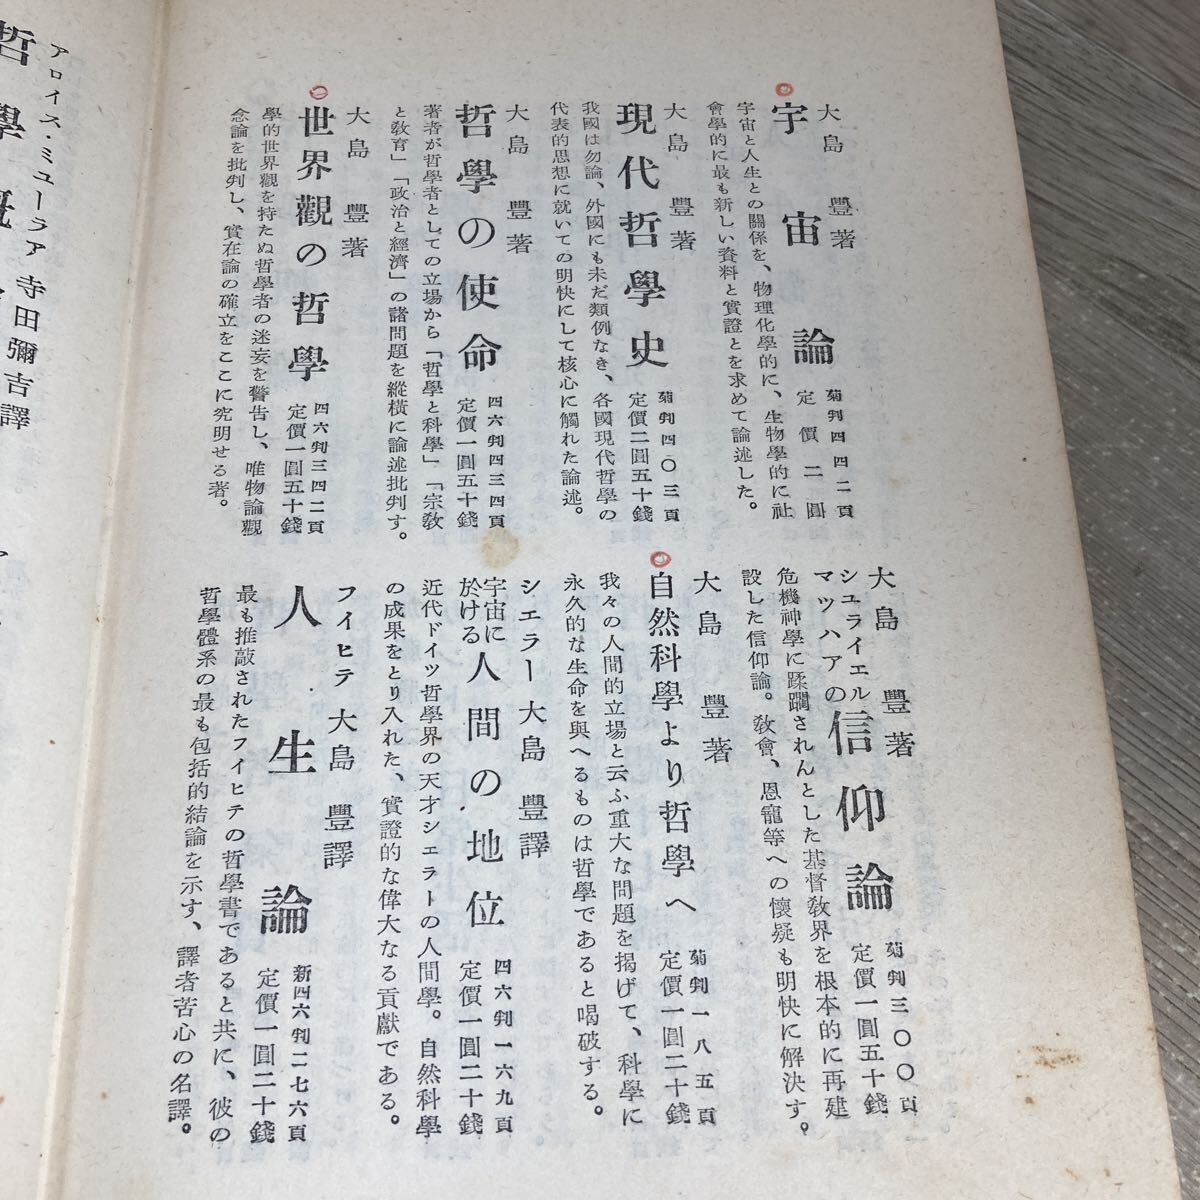 大島豐著
宇宙論
菊判四四二頁
定價二圓
宇宙と人生との關係を、物理化學的に、生物學的に社
會學的に最も新しい資料と實證とを求めて論述した。
大島豐著
現代哲學史
菊判四〇三頁
定價二圓五十錢
我國は勿論、外國にも未だ類例なき、各國現代哲學の
代表的思想に就いての明快にして核心に觸れた論述。
大島豐著
哲學の使命
四六判四三四頁
定價一圓五十錢
著者が哲學者としての立場から「哲學と科學」「宗敎
と敎育」「政治と經濟」の諸問題を縱橫に論述批判す。
大島豐著
世界觀の哲學
四六判三四二頁
定價一圓五十錢
學的世界觀を持たぬ哲學者の迷妄を警告し、唯物論觀
念論を批判し、實在論の確立をここに究明せる著。
大島豐著
シユライエル
マツハアの信仰論
菊判三〇〇頁
定價一圓五十錢
危機神學に蹂躙されんとした基督敎界を根本的に再建
設した信仰論。敎會、恩寵等への懷疑も明快に解決す。
大島豐著
自然科學より哲學へ
菊判一八五頁
定價一圓二十錢
我々の人間的立場と云ふ重大な問題を揭げて、科學に
永久的な生命を與へるものは哲學であると喝破する。
シエラー大島豐譯
宇宙に
於ける人間の地位
四六判一六九頁
定價一圓二十錢
近代ドイツ哲學界の天才シエラーの人間學。自然科學
の成果をとり入れた、實證的な偉大なる貢獻である。
フイヒテ大島豐譯
人生論
新四六判二七六頁
定價一圓二十錢
最も推敲されたフイヒテの哲學書であると共に、彼の
哲學體系の最も包括的結論を示す、譯者苦心の名譯。
アロイス・ミユーラア寺田彌吉譯
哲學概